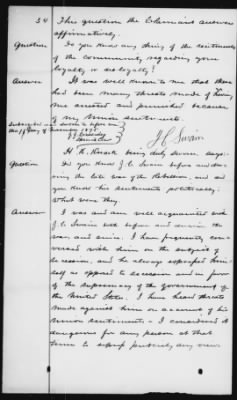 34
This question the Claimant answers
affirmatively.
Question Do you know any thing of the sentiments
of the community regarding your
loyalty or disloyalty?
Answer It was well known to me that there
had been many threats made of having
me arrested and punished because
of my Union sentiments.
Subscribed and sworn to before me
this day of 187
J. C. Swain
H. K. being duly sworn, says:
Question Did you know J. C. Swain before and dur-
ing the late war of the Rebellion, and did
you know his sentiments politically.
What were they
Answer I was and am well acquainted with
J. C. Swain both before and during the
war and since. I have frequently con-
versed with him on the subject of
secession, and he always expressed him-
self as opposed to secession and in favor
of the supremacy of the government of
the United States. I have heard threats
made against him on account of his
Union sentiments - I considered it
dangerous for any person at that
time to express publicly any views